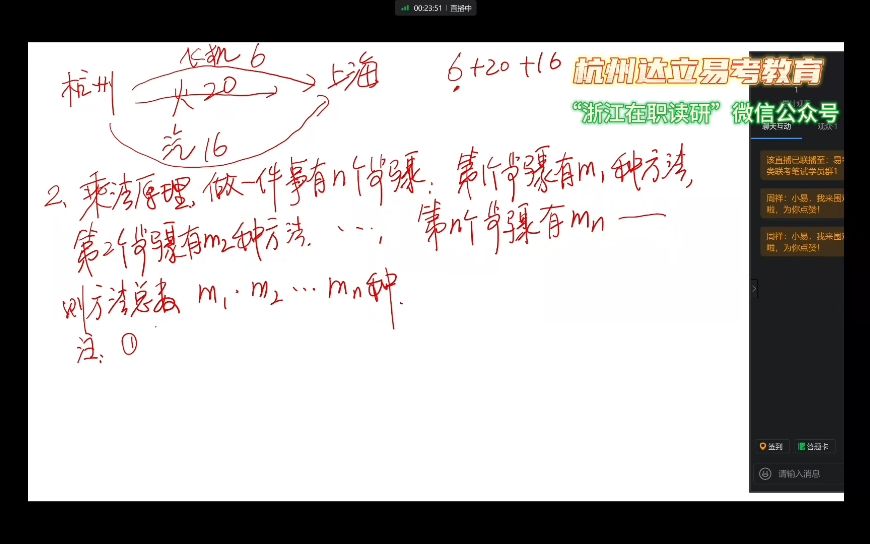 00:23:51 | 直播中
飞机 6
杭州 火 20 上海
汽 16
6+20+16
杭州达立易考教育
“浙江在职读研”微信公众号
1
聊天互动
2、乘法原理,做一件事有n个步骤:第1个步骤有m1种方法,
第2个步骤有m2种方法, …, 第n个步骤有mn —
则方法总数 m1·m2…mn种.
注: ①
该直播已联播至:易
类联考笔试学员群1
周祥:小易,我来围
啦,为你点赞!
周祥:小易,我来围
啦,为你点赞!
签到 答题卡
请输入消息